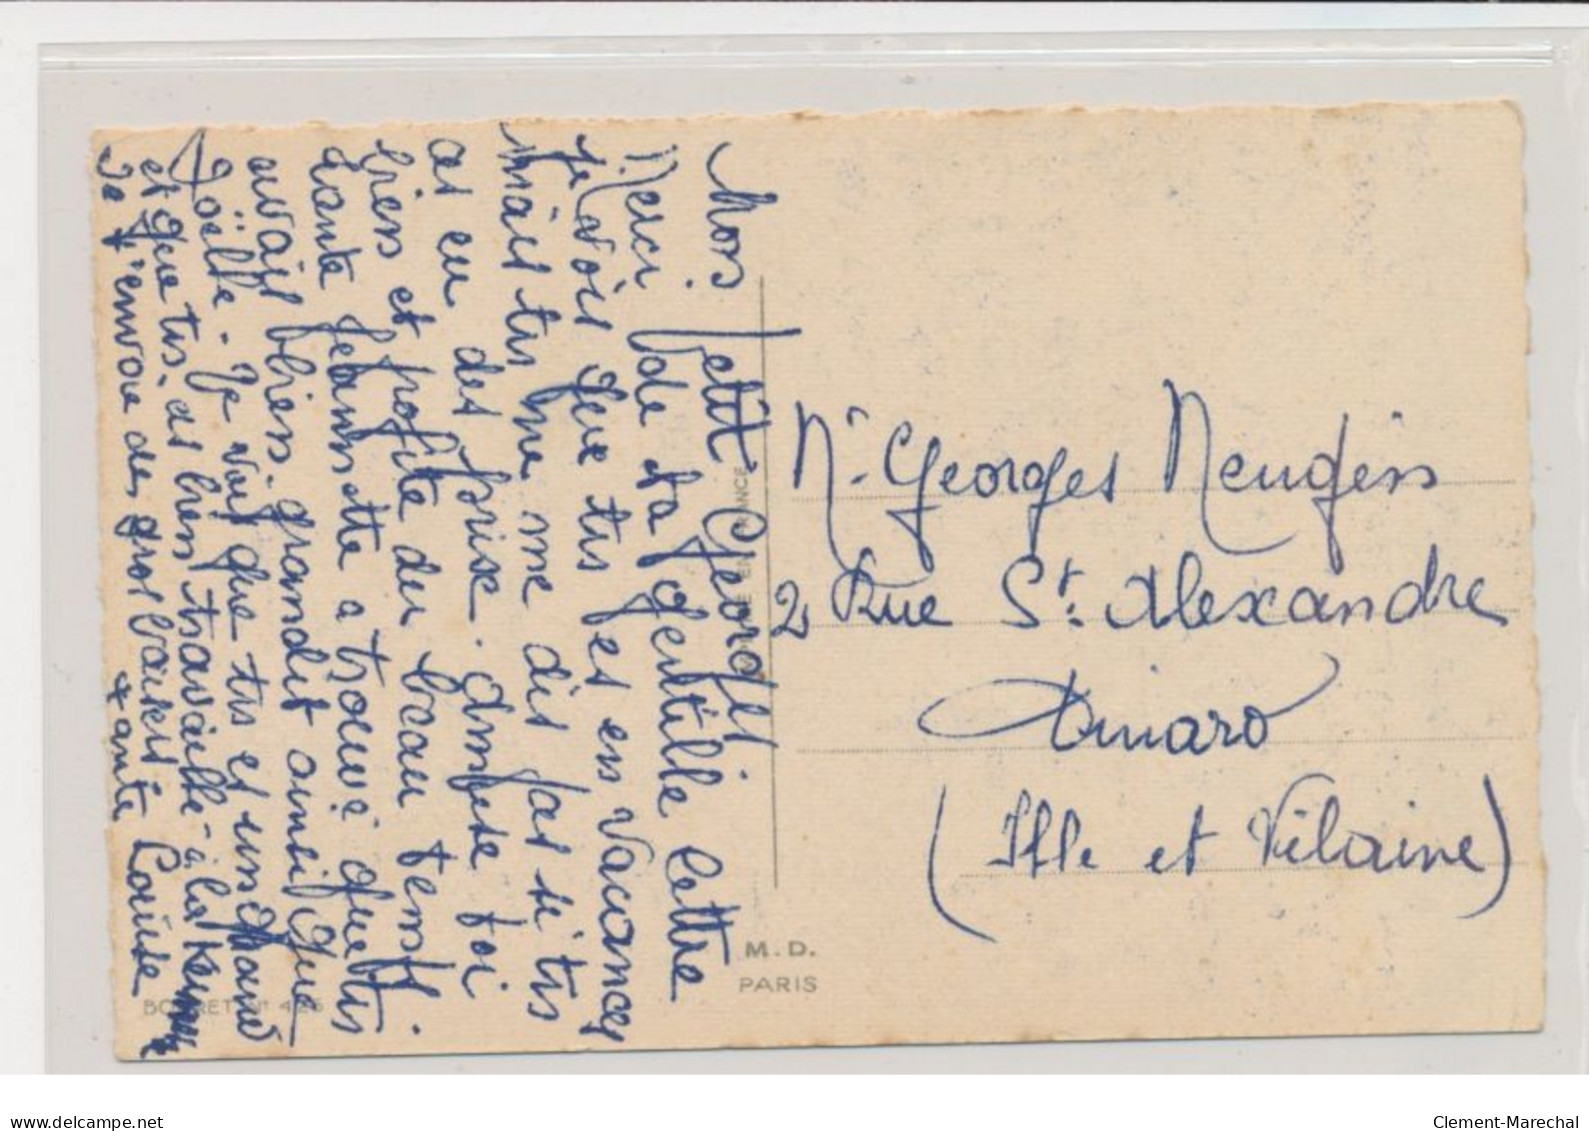 Mon petit Georges
Merci de ta gentille lettre
je vois que tu es en vacances
mais tu ne me dis pas si tu
as eu des prise. amuse toi
bien et profite du beau temps.
tante Jeannette a trouvé que tu
avais bien grandit ainsi que
Joëlle. Je vois que tu es un
et que tu as bien travaillé à la
Je t'envoie des gros baisers
tante Louise
Mr Georges
2 Rue St. Alexandre
Dinard
(Ille et Vilaine)
M.D.
PARIS
delcampe.net
Clement-Marechal